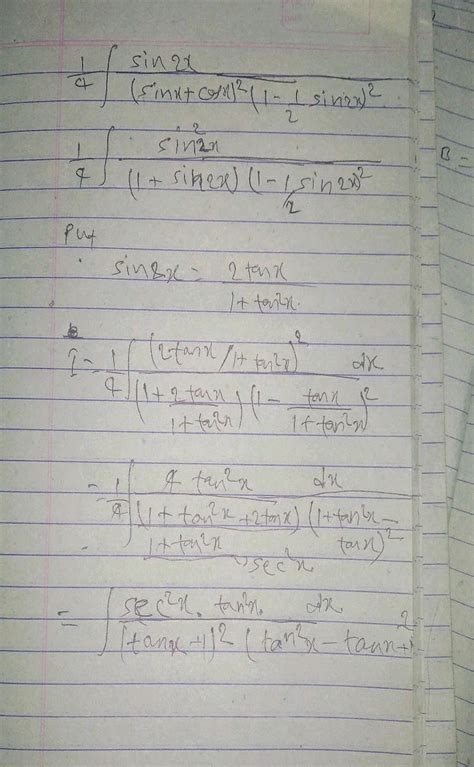 1/4 ∫ sin2x / (sinx + cosx)² (1 - 1/2 sin2x)²
1/4 ∫ sin²2x / (1 + sin2x) (1 - 1/2 sin2x)²
B =
Put
sin2x = 2tanx / 1 + tan²x
I = 1/4 ∫ (2tanx / 1 + tan²x)² dx / (1 + 2tanx / 1 + tan²x) (1 - tanx / 1 + tan²x)²
= 1/4 ∫ 4 tan²x dx / (1 + tan²x + 2tanx) / 1 + tan²x (1 + tan²x - tanx)²
→ sec²x
= ∫ sec²x . tan²x . dx / (tanx + 1)² (tan²x - tanx + 1)²